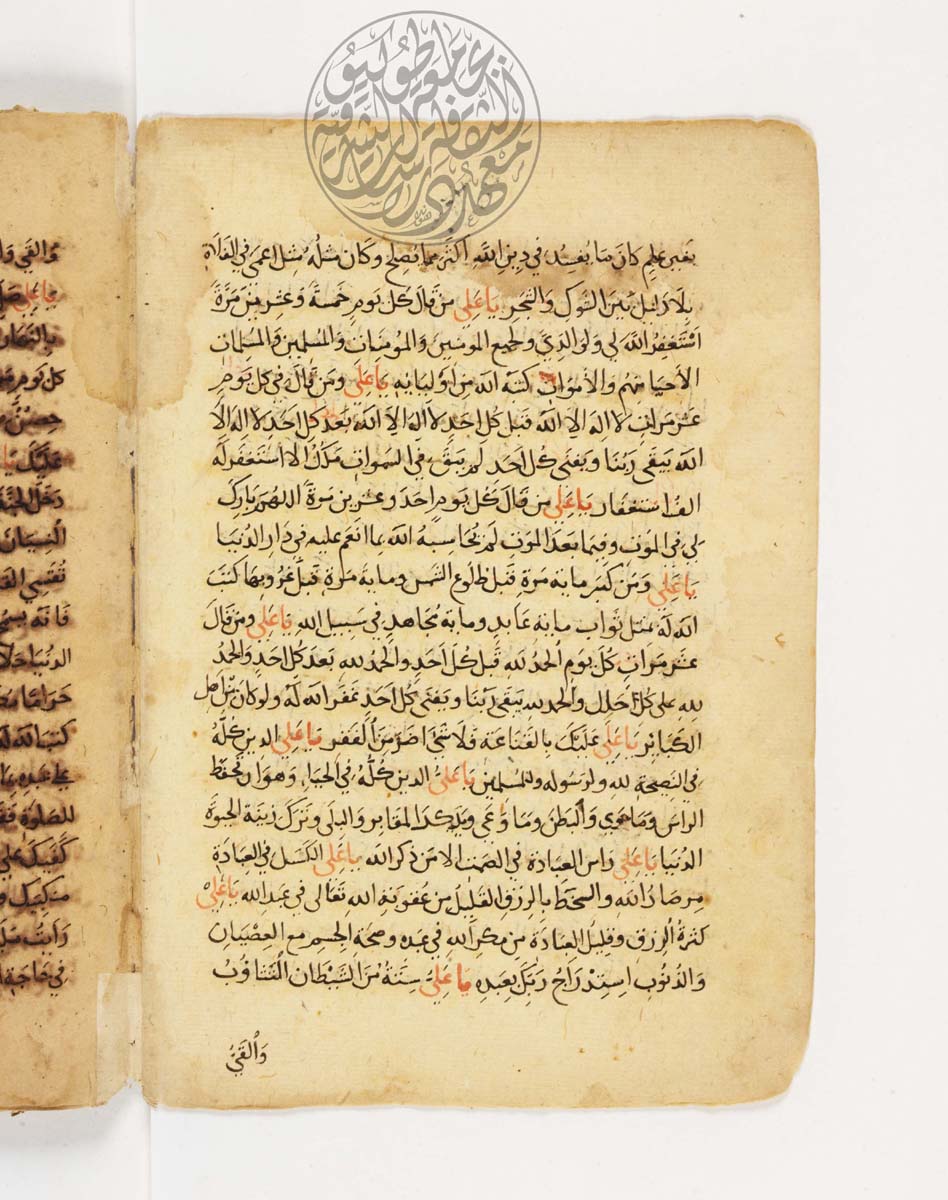 بغير علم كان ما يفسد في دين الله اكثر مما يصلح وكان مثله مثل اعمى في الفلاة
بلا دليل بين الشوك والشجر يا علي من قال كل يوم خمسة وعشرين مرة
استغفر الله لي ولوالدي ولجميع المومنين والمومنات والمسلمين والمسلمات
الاحيا منهم والاموات كتبه الله من اوليايه يا علي ومن قال في كل يوم
عشر مرات لا اله الا الله قبل كل احد لا اله الا الله بعد كل احد لا اله الا
الله يبقى ربنا ويفنى كل احد لم يبق في السموات ملك الا استغفر له
الف استغفار يا علي من قال كل يوم احد وعشرين مرة اللهم بارك
لي في الموت وفيما بعد الموت لم يحاسبه الله بما انعم عليه في دار الدنيا
يا علي ومن كبر ماية مرة قبل طلوع الشمس وماية مرة قبل غروبها كتب
الله له مثل ثواب ماية عابد وماية مجاهد في سبيل الله يا علي ومن قال
عشر مرات كل يوم الحمد لله قبل كل احد والحمد لله بعد كل احد والحمد
لله على كل حال والحمد لله يبقى ربنا ويفنى كل احد غفر الله له ولو كان من اهل
الكباير يا علي عليك بالقناعة فلا شي اضر من الفقر يا علي الدين كله
في النصيحة لله ولرسوله وللمسلمين يا علي الدين كله في الحيا وهو ان تحفظ
الراس وما حوى والبطن وما وعى ويذكر المقابر والبلى وترك زينة الحيوة
الدنيا يا علي راس العبادة في الصمت الا من ذكر الله يا علي الكسل في العبادة
من الله والسخط بالرزق القليل من عقوبة الله تعالى في عبد الله يا علي
كثرة الرزق وقليل العبادة من مكر الله في عبده وصحة الجسم مع العصيان
والذنوب استدراج ربك بعبده يا علي ستة من الشيطان التثاوب
والقي